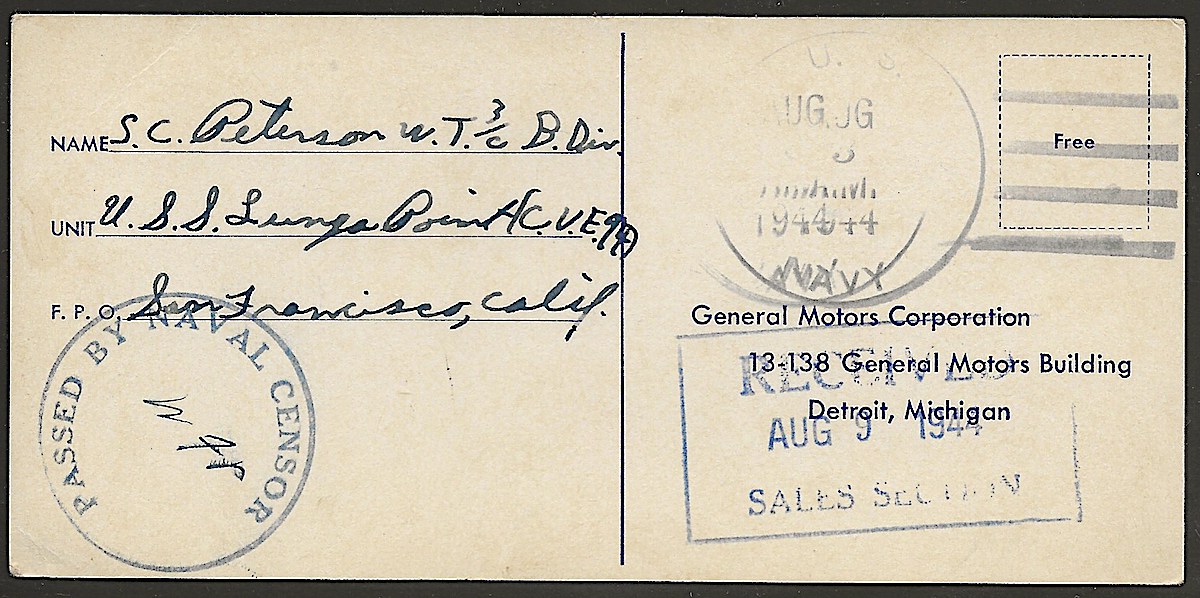 NAME S. C. Peterson W. T. 3/c B. Div.
UNIT U. S. S. Lunga Point (C. V. E. 94)
F. P. O. San Francisco, Calif.
PASSED BY NAVAL CENSOR
U. S.
AUG
1944
NAVY
Free
General Motors Corporation
13-138 General Motors Building
Detroit, Michigan
RECEIVED
AUG 9 1944
SALES SECTION